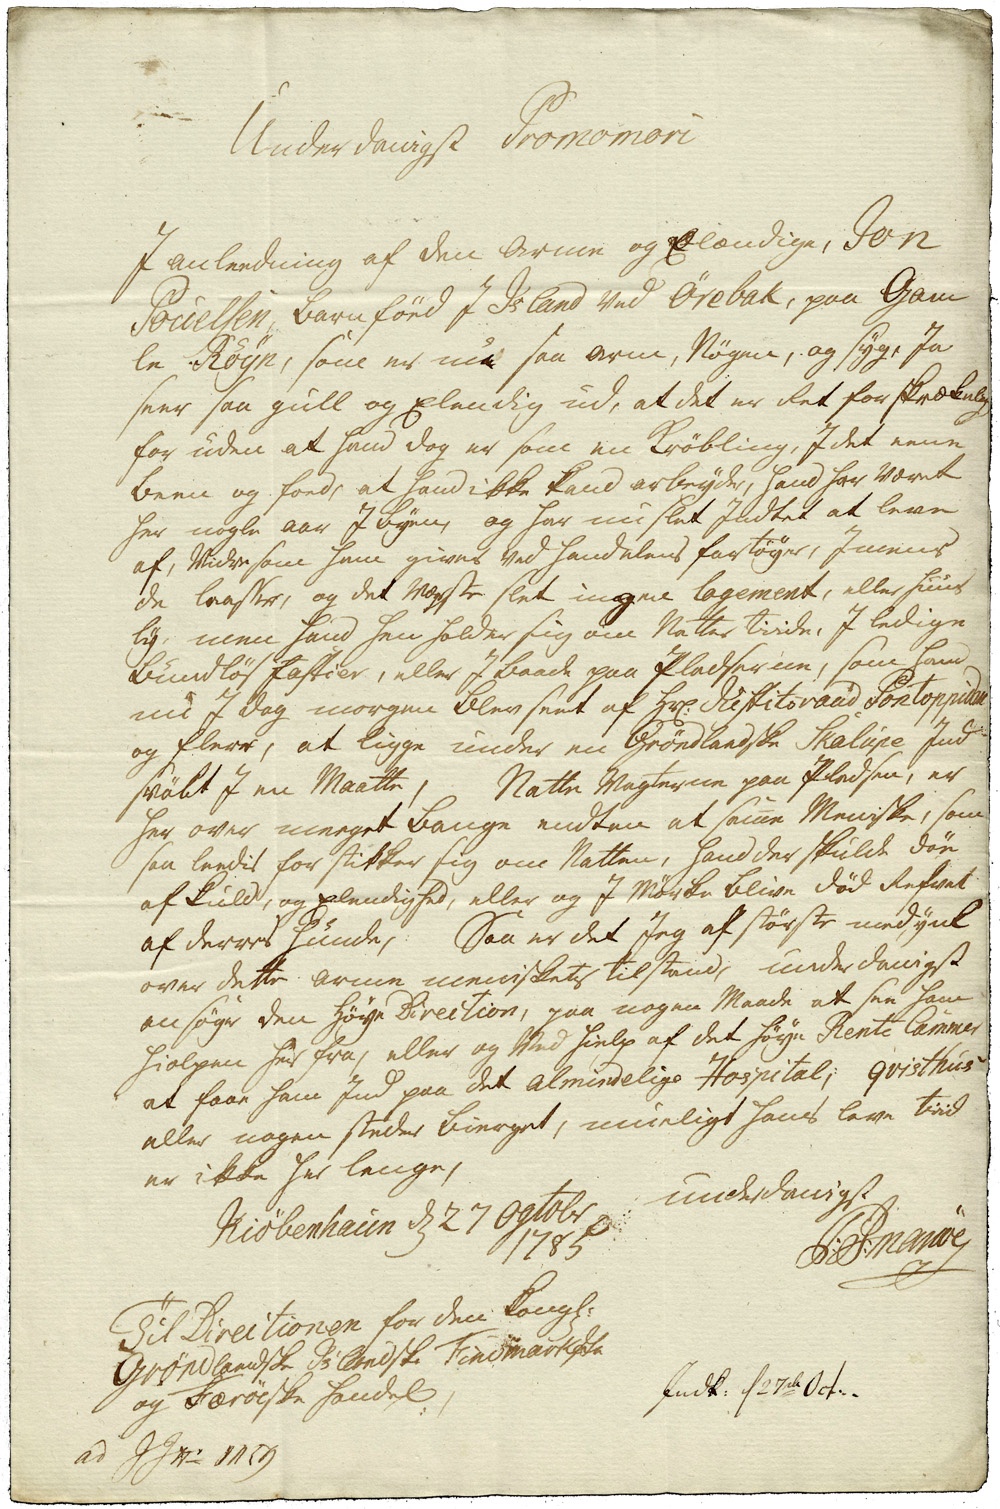 Underdanigst Promomori
J anleedning af den arme og Elændige, Jon
Pouelsen, barnföed J Island ved Örebak, paa Gam
le Röÿn, som er nu saa arm, Nögen, og sÿg, Ja
seer saa gull og Elendig ud, at det er Ret forskrækelig
for uden at hand dog er som en Kröbling, J det eene
been og foed, at hand ikke kand arbeÿde, hand har været
her nogle aar J bÿen, og har nu slet Jndtet at leve
af, Videre som ham gives ved handelens fartöÿer, Jmens
de laasser, og det Værste slet ingen logement, eller huus
lÿ, men hand hen holder sig om Natter tiide, J ledige
bundlös fastier, eller J baade paa Pladserne, som hand
nu J dag morgen blev seet af Hr. Justitsraad Pontoppidan
og flere, at ligge under en Gröndlandske Skalupe Jnd
svöbt J en Maatte, Natte Vegterne paa Pladsen, er
her over meeget bange endten at samme Meniske, som
saa leedis for stikker sig om Natten, hand der skulde döe
af kuld, og Elendighed, eller og J Mörke blive död Refvet
af derres hunde, Saa er det Jeg af störste medÿnk
over dette arme meniskets tilstand, underdanigst
ansöger den höÿe Direction, paa nogen Maade at see ham
hiolpen her fra, eller og Ved hielp af det höÿe Rente Cammer
at faae ham Jnd paa det almindelige Hospital, qvisthuus
eller nogen steder bierget, mueligt hans leve tiid
er ikke her lenge,
underdanigst
Kiöbenhaun d 27 Ogtobr
1785
P: P: marröe
Til Directionen for den kongl:
Gröndlandske Islandske Findmarkske
og Færöiske handel,
Indk: d 27de Oct.
ad J No 1159